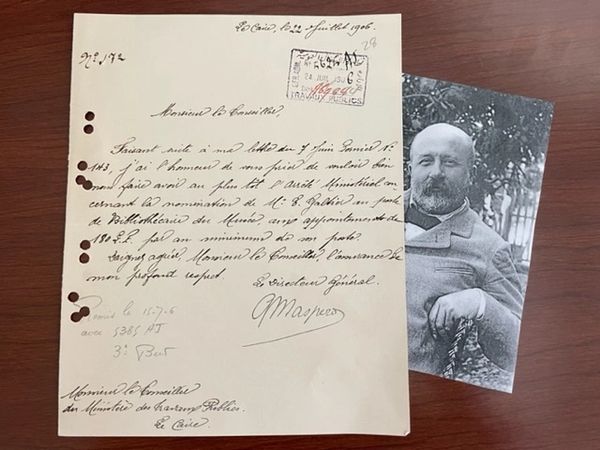 Le Caire, le 22 Juillet 1906.
28
No. 172
24 JUIL 1906
TRAVAUX PUBLICS
Monsieur le Conseiller,
Faisant suite à ma lettre du 7 Juin dernier No.
143, j'ai l'honneur de vous prier de vouloir bien
nous faire avoir au plus tôt l'Arrêté Ministériel con
cernant la nomination de Mr. E. Galtier au poste
de Bibliothécaire du Musée, aux appointements de
180 £.E. par an minimum de son poste.
Daignez agréer, Monsieur le Conseiller, l'assurance de
mon profond respect
Le Directeur Général.
G Maspero
le 15-7-6
avec 5385 AJ
3e
Monsieur le Conseiller
du Ministère des Travaux Publics.
Le Caire.